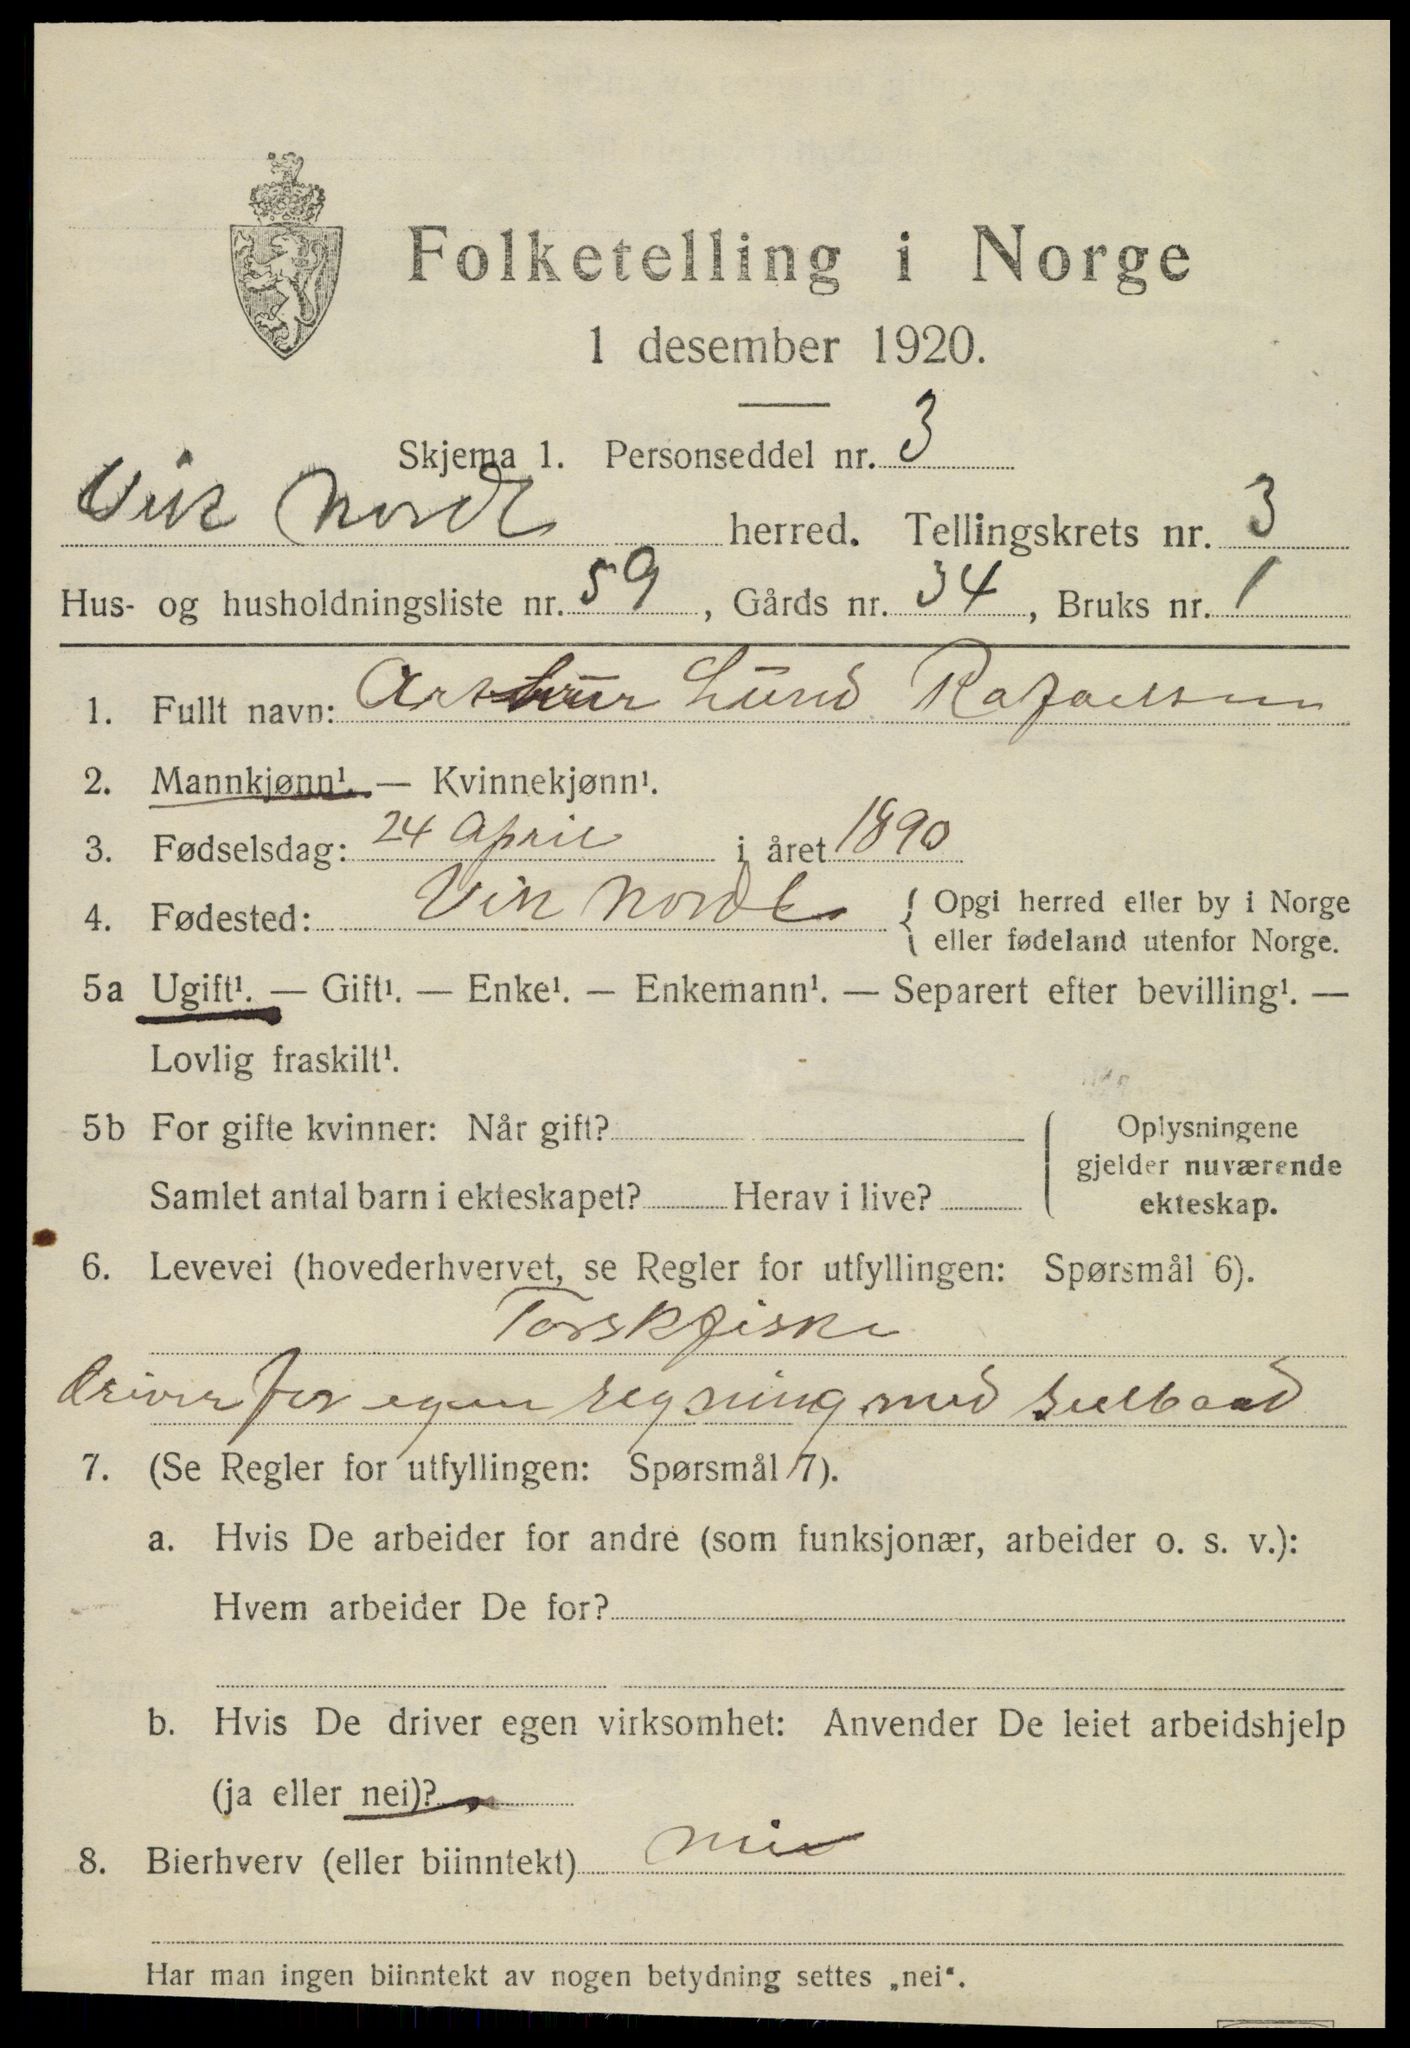 Folketelling i Norge
1 desember 1920.
Skjema 1. Personseddel nr. 3
Vik Nordl herred. Tellingskrets nr. 3
Hus- og husholdningsliste nr. 59, Gårds nr. 34, Bruks nr. 1
1. Fullt navn: Arthur Lund Rafaelsen
2. Mannkjønn¹. — Kvinnekjønn¹.
3. Fødselsdag: 24 April i året 1890
4. Fødested: Vik Nordl { Opgi herred eller by i Norge
eller fødeland utenfor Norge.
5a Ugift¹. — Gift¹. — Enke¹. — Enkemann¹. — Separert efter bevilling¹. —
Lovlig fraskilt¹.
5b For gifte kvinner: Når gift?
Samlet antal barn i ekteskapet? Herav i live?
{ Oplysningene
gjelder nuværende
ekteskap.
6. Levevei (hovederhvervet, se Regler for utfyllingen: Spørsmål 6).
Torskfiske
driver for egen regning med seilbaad
7. (Se Regler for utfyllingen: Spørsmål 7).
a. Hvis De arbeider for andre (som funksjonær, arbeider o. s. v.):
Hvem arbeider De for?
b. Hvis De driver egen virksomhet: Anvender De leiet arbeidshjelp
(ja eller nei)?
8. Bierhverv (eller biinntekt) nei
Har man ingen biinntekt av nogen betydning settes „nei“.